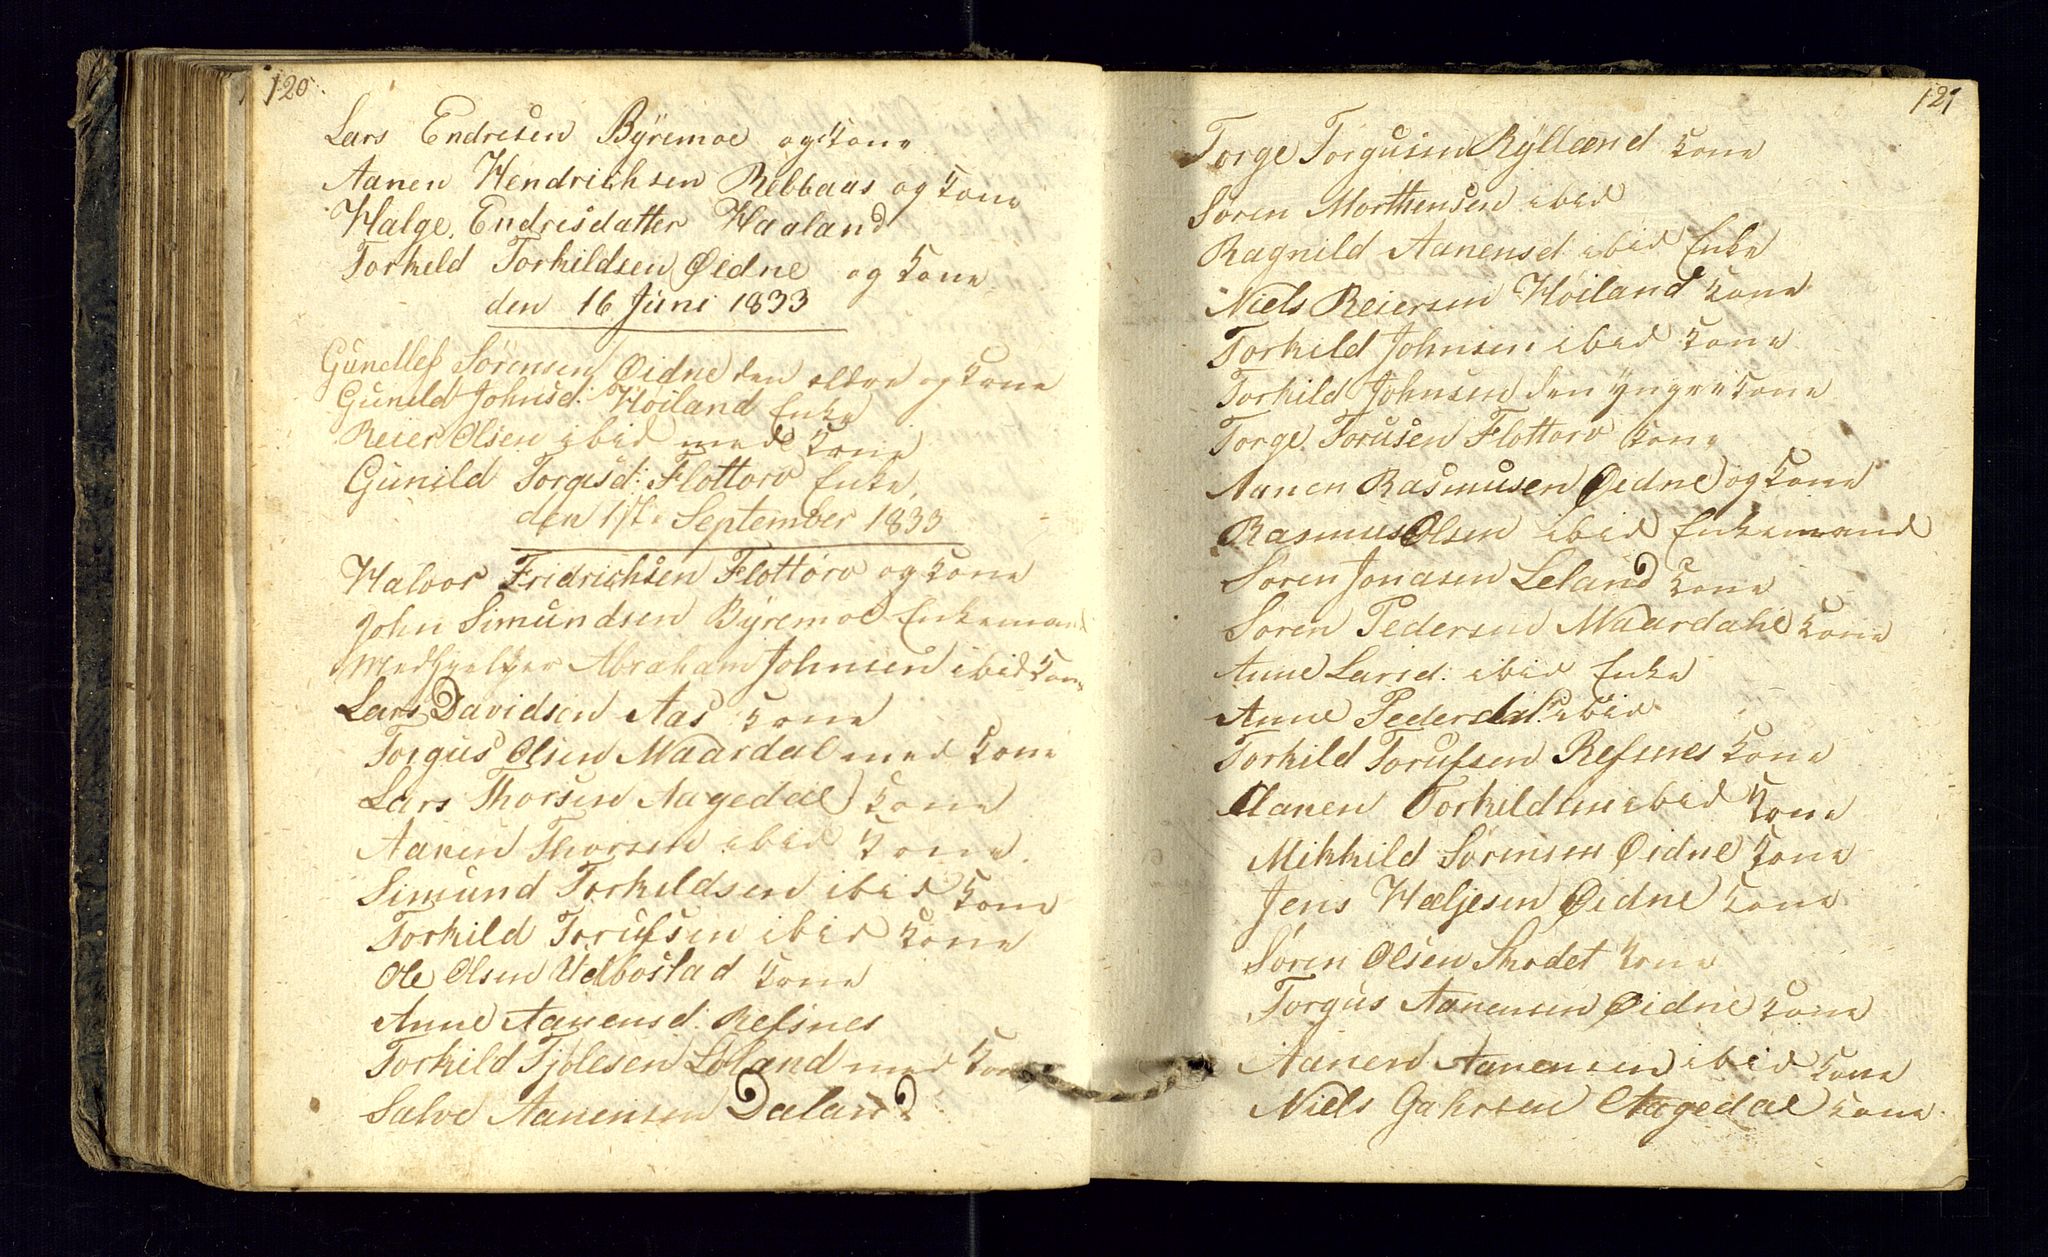 120.
Lars Endresen Byremoe og Kone
Aanen Hendrichsen Rebbaas og Kone
Halge Endresdatter Haaland
Torkeld Torkildsen Øidne og Kone
den 16 Juni 1833
Gunellef Sörensen Øidne den eldre og Kone
Guneld Johnsd: Höiland Enke
Reier Olsen ibid med Kone
Gunild Torgesd: Flottorv Enke
den 1ste September 1833
Halvor Fridrichsen Flottorv og Kone
John Simundsen Byremoe Enkemand
Medhjelper Abraham Johnsen ibid Kone
Lars Davidsen Aas Kone
Torgus Olsen Maardal med Kone
Lars Thorsen Aagedal Kone
Aanen Thorsen ibid Kone
Simund Torkeldsen ibid Kone
Torkild Torufsen ibid Kone
Ole Olsen Udbostad Kone
Anne Aanensd: Refsnes
Torkild Tjölesen Löland med Kone
Salve Aanensen Daland
121
Torge Torgusen Rylland Kone
Soren Morthensen ibid
Ragnild Aanensd: ibid Enke
Niels Reiersen Höiland Kone
Torkeld Johnsen ibid Kone
Torkild Johnsen den yngre Kone
Torge Torusen Flottorv Kone
Aanen Rasmusen Øidne og Kone
Rasmus Olsen ibid Enkemand
Soren Jonasen Leland Kone
Soren Pedersen Maardahl Kone
Anne Larsd: ibid Enke
Anne Pedersd: ibid
Torkild Torufsen Refsnes Kone
Aanen Torkeldsen ibid Kone
Mikkild Sörensen Øidne Kone
Jens Heljesen Øidne Kone
Sören Olsen Skodet Kone
Torgus Aanensen Øidne Kone
Aanen Aanensen ibid Kone
Niels Gahrsen Aagedal Kone